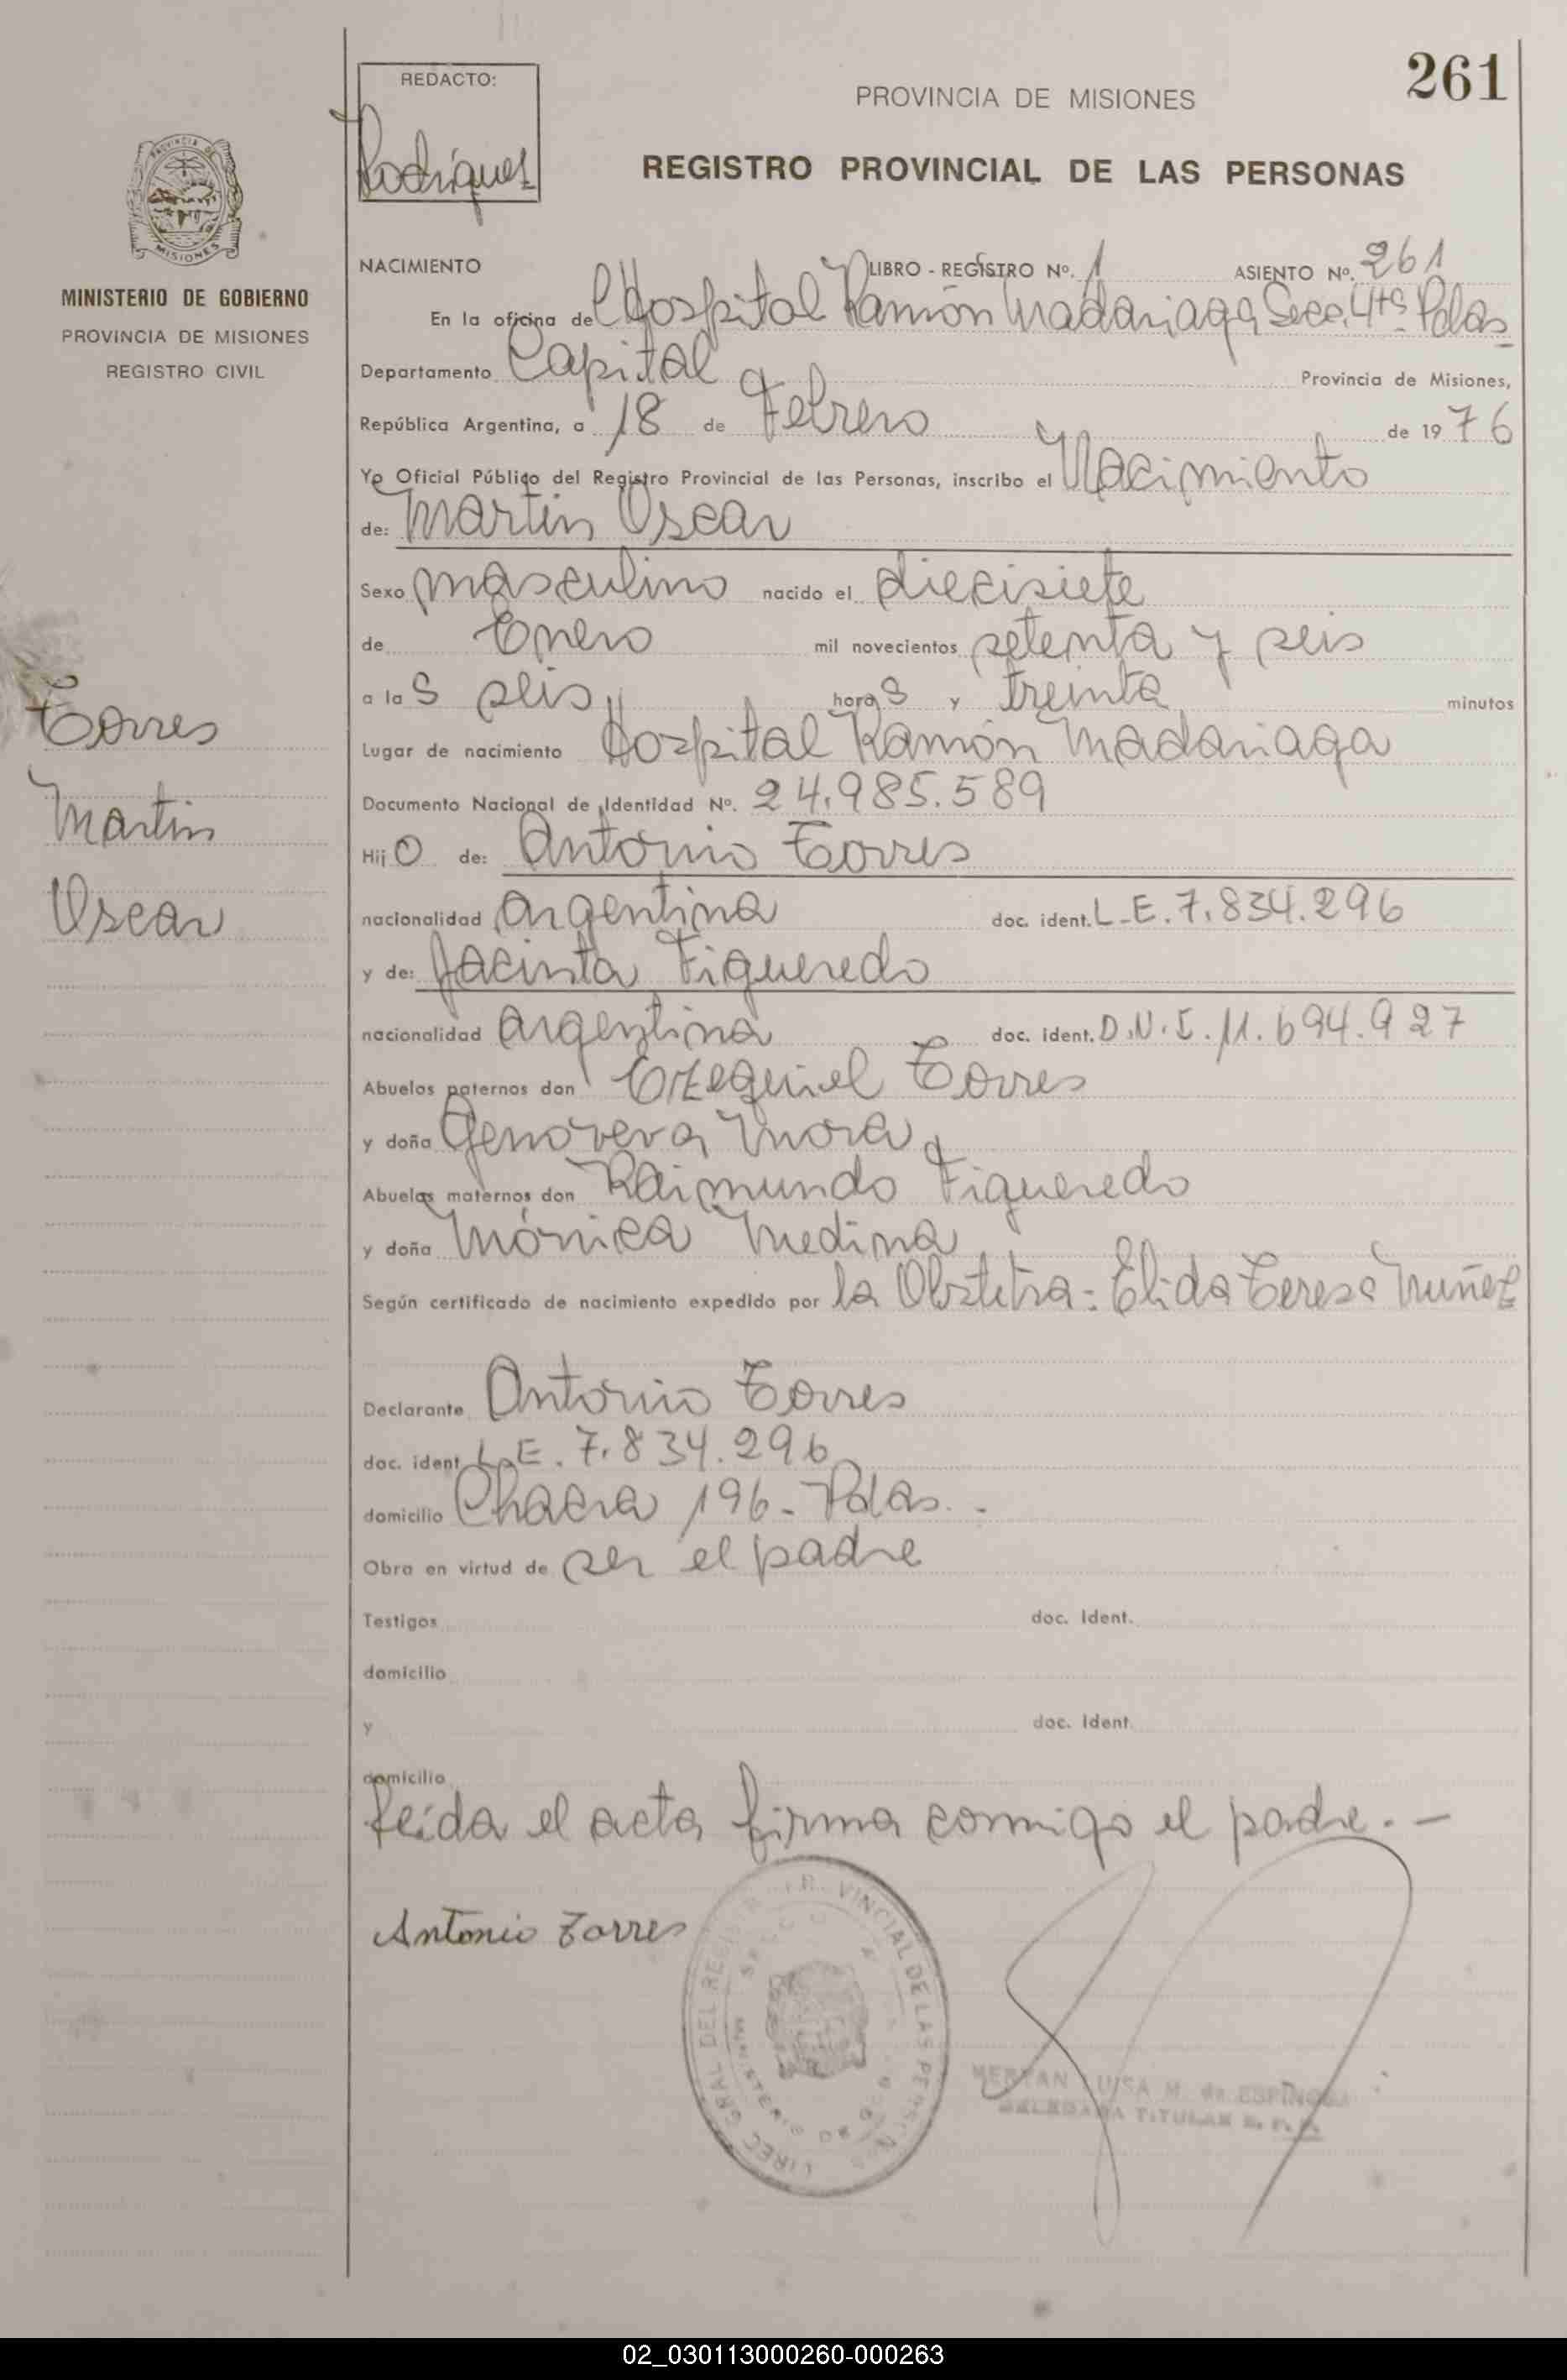 REDACTO:
Rodríguez
PROVINCIA DE MISIONES
261
REGISTRO PROVINCIAL DE LAS PERSONAS
PROVINCIA DE
MISIONES
MINISTERIO DE GOBIERNO
PROVINCIA DE MISIONES
REGISTRO CIVIL
Torres
Martin
Oscar
NACIMIENTO LIBRO - REGISTRO Nº. 1 ASIENTO Nº. 261
En la oficina de Hospital Ramón Madariaga Secc. 4ta Pdas
Departamento Capital Provincia de Misiones,
República Argentina, a 18 de Febrero de 1976
Yo Oficial Público del Registro Provincial de las Personas, inscribo el Nacimiento
de: Martin Oscar
Sexo masculino nacido el diecisiete
de Enero mil novecientos setenta y seis
a las seis horas y treinta minutos
Lugar de nacimiento Hospital Ramón Madariaga
Documento Nacional de Identidad Nº. 24.985.589
Hijo de: Antonio Torres
nacionalidad argentina doc. ident. L.E. 7.834.296
y de: Jacinta Figueredo
nacionalidad argentina doc. ident. D.N.I. 11.694.927
Abuelos paternos don Ezequiel Torres
y doña Genoveva Mora
Abuelos maternos don Raimundo Figueredo
y doña Mónica Medina
Según certificado de nacimiento expedido por la Obstetra: Elida Teresa Nuñez
Declarante Antonio Torres
doc. ident. L.E. 7.834.296
domicilio Chacra 196 - Pdas. -
Obra en virtud de ser el padre
Testigos doc. Ident.
domicilio
y doc. Ident.
domicilio
Leída el acta firma conmigo el padre. -
Antonio Torres
VINCIAL DE LAS PERSONAS
GRAL DEL
LUISA M. de ESPINOSA
DELEGADA TITULAR R. P. P.
02_030113000260-000263